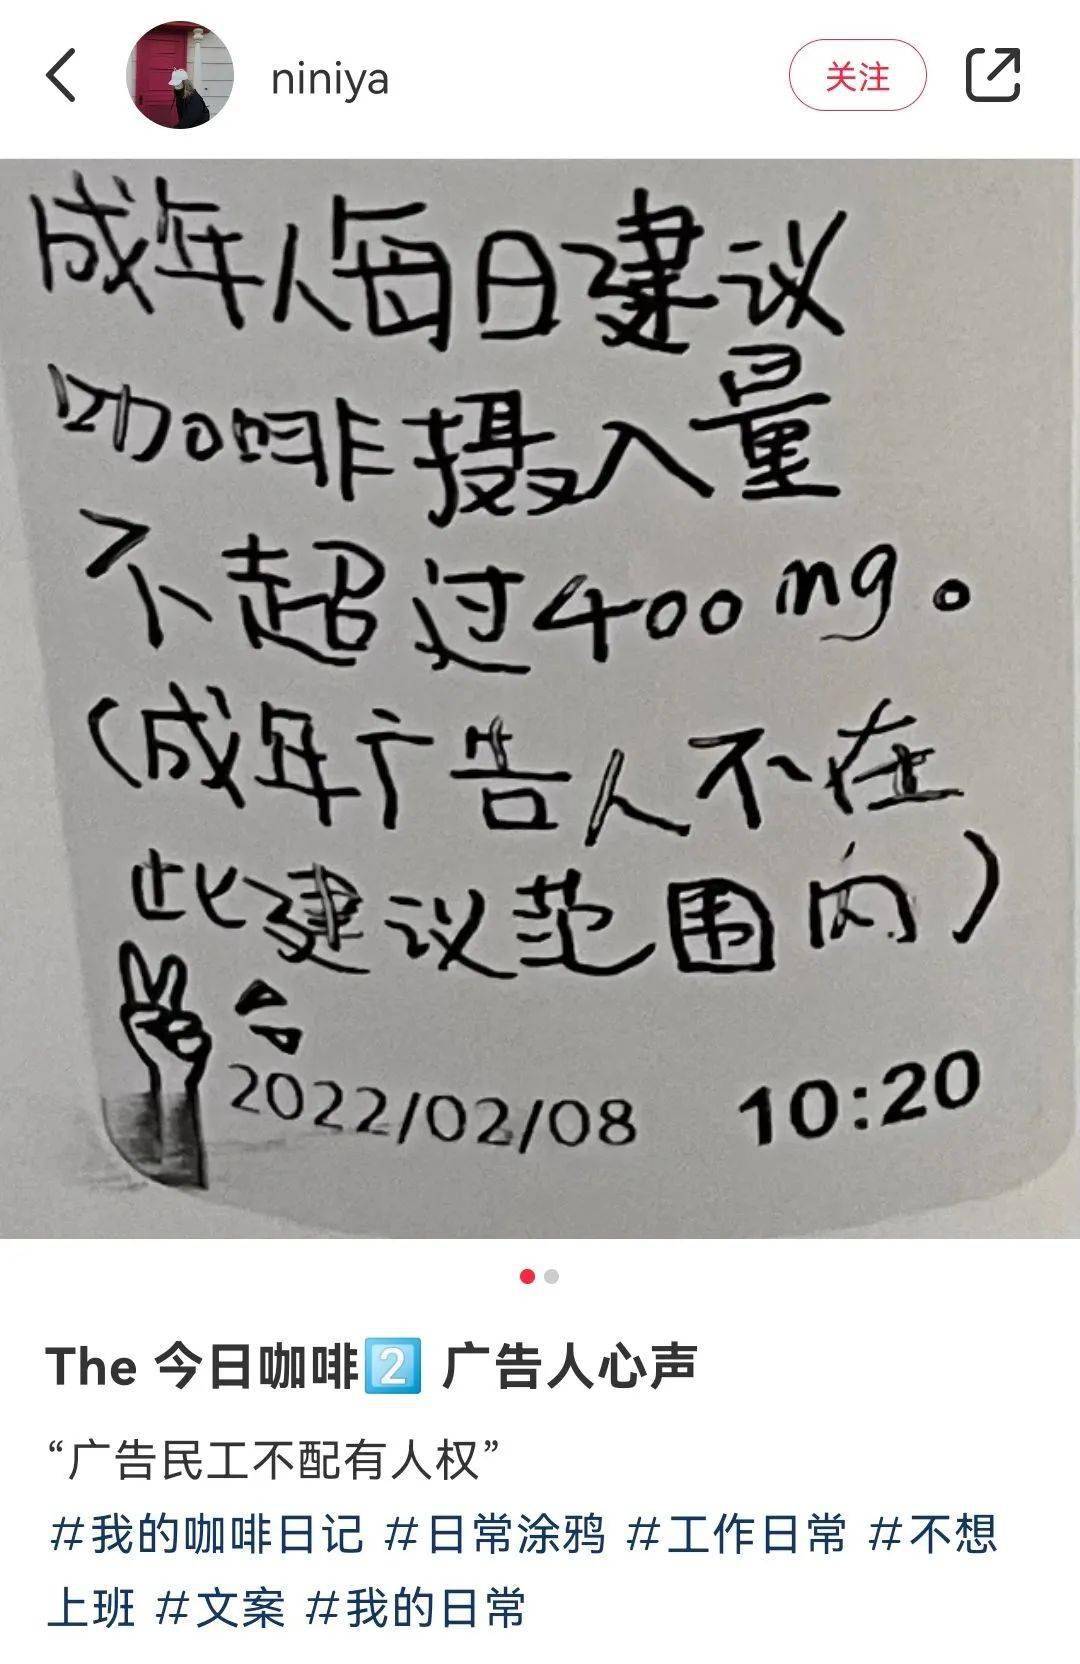 niniya
关注
成年人每日建议
咖啡摄入量
不超过400mg。
(成年广告人不在
此建议范围内)
2022/02/08 10:20
The 今日咖啡2️⃣ 广告人心声
“广告民工不配有人权”
#我的咖啡日记 #日常涂鸦 #工作日常 #不想
上班 #文案 #我的日常